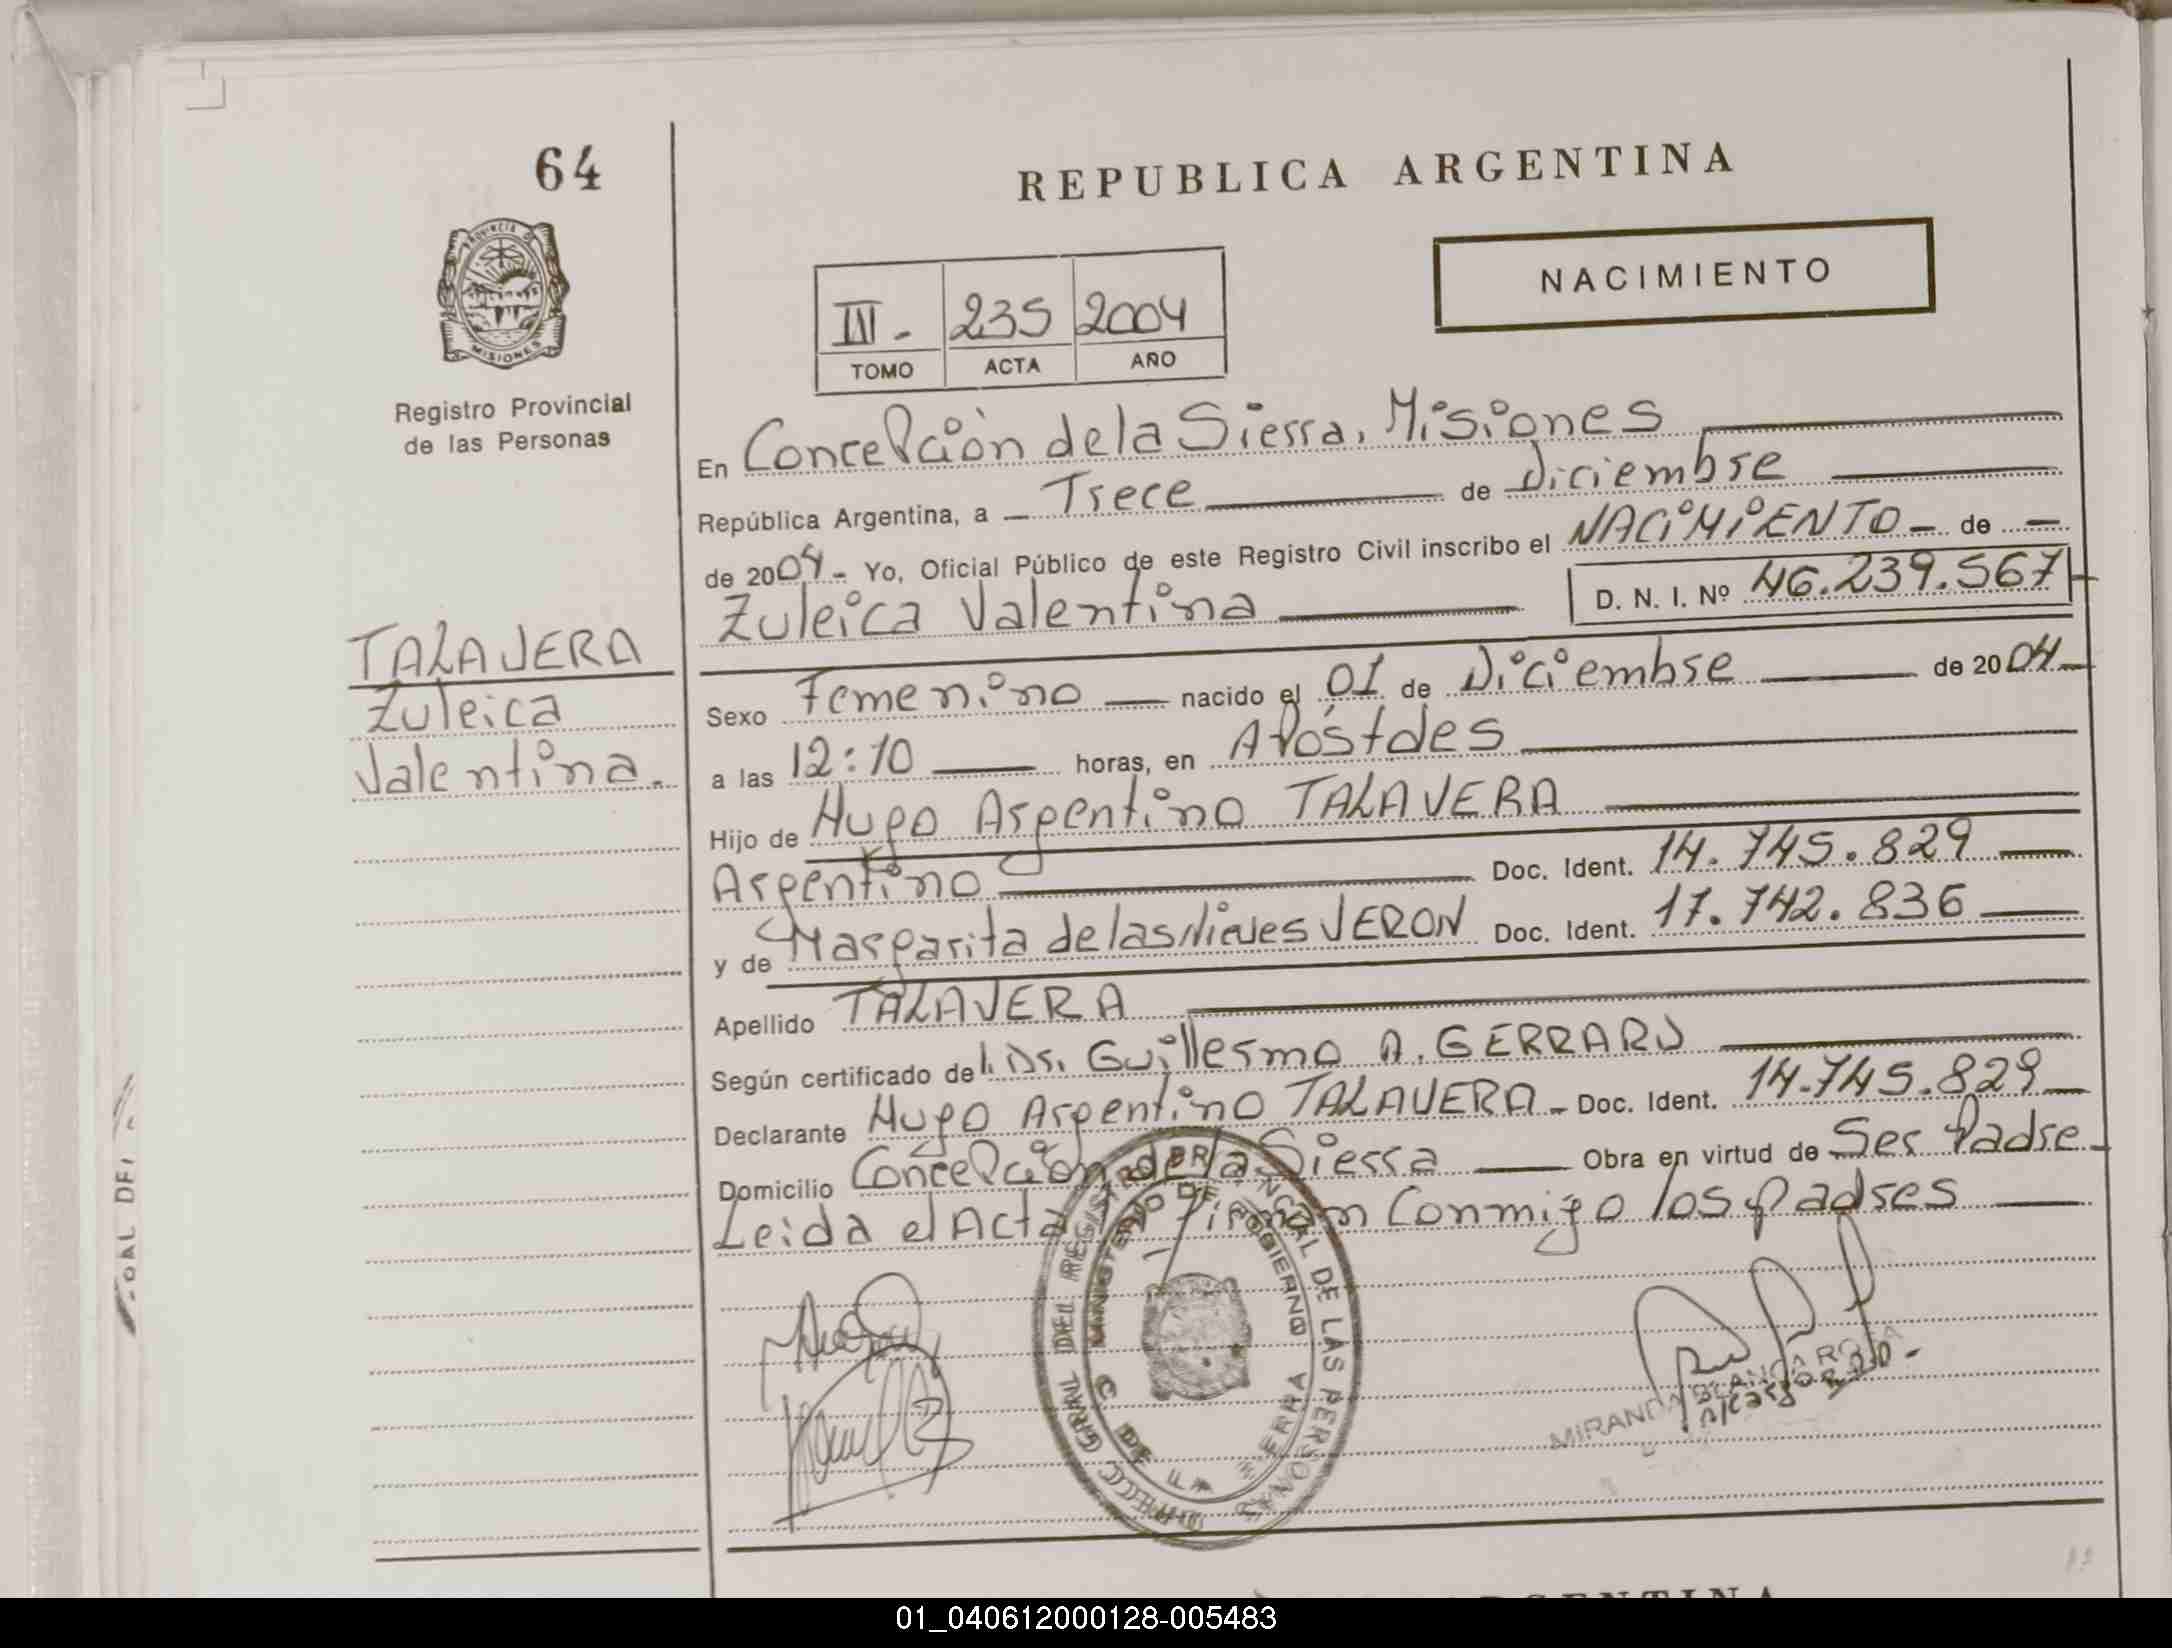 64
REPUBLICA ARGENTINA
NACIMIENTO
PROVINCIA DE
MISIONES
III - 235 2004
TOMO ACTA AÑO
Registro Provincial
de las Personas
En Concepción de la Sierra, Misiones
República Argentina, a Trece de Diciembre
de 2004 - Yo, Oficial Público de este Registro Civil inscribo el NACIMIENTO - de -
Zuleica Valentina D. N. I. Nº 46.239.567
TALAVERA
Zuleica
Valentina.
Sexo Femenino nacido el 01 de Diciembre de 2004
a las 12:10 horas, en Apóstoles
Hijo de Hugo Argentino TALAVERA
Argentino Doc. Ident. 14.745.829
y de Margarita de las Nieves VERON Doc. Ident. 17.742.836
Apellido TALAVERA
Según certificado del. Dr. Guillermo A. GERRARD
Declarante Hugo Argentino TALAVERA - Doc. Ident. 14.745.829
Domicilio Concepción de la Sierra Obra en virtud de Ser Padre
Leida el Acta Firman Conmigo los padres
MINISTERIO DE GOBIERNO
MIRANDA BLANCA ROSA
A/Cargo R.P.P.-
01_040612000128-005483